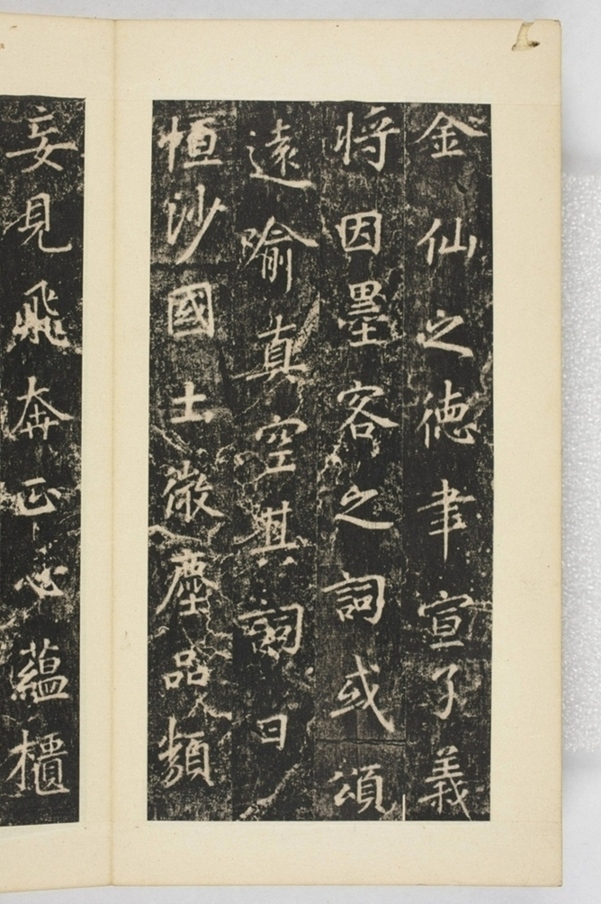 金仙之德聿宣子義
将因墨客之詞或頌
遠喻真空其詞曰
恒沙國土微塵品類
妄見飛奔正心蘊櫃